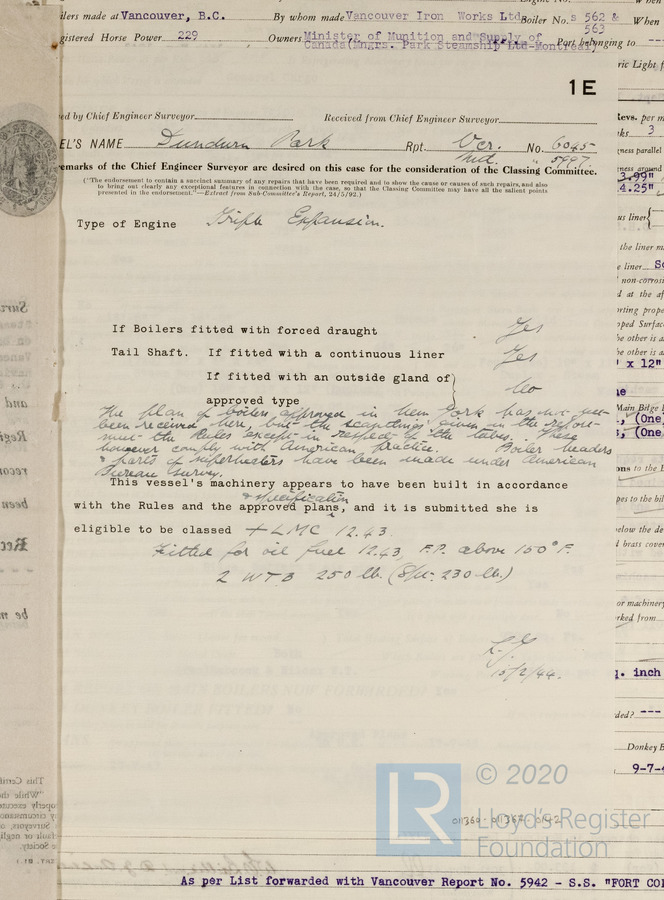 ilers made at Vancouver, B.C. By whom made Vancouver Iron Works Ltd. Boiler No. s 562 & 563 When
gistered Horse Power 229 Owners Minister of Munition and Supply of Port belonging to ---
Canada(Mngrs. Park Steamship Ltd-Montreal)
ric Light f
1E
ed by Chief Engineer Surveyor Received from Chief Engineer Surveyor
Revs. per m
EL'S NAME Dundurn Park Rpt. Vcr. No. 6045
Mtl. 5797.
emarks of the Chief Engineer Surveyor are desired on this case for the consideration of the Classing Committee.
("The endorsement to contain a succinct summary of any repairs that have been required and to show the cause or causes of such repairs, and also
to bring out clearly any exceptional features in connection with the case, so that the Classing Committee may have all the salient points
presented in the endorsement."—Extract from Sub-Committee's Report, 24/5/92.)
3.99"
4.25"
Type of Engine Triple Expansion.
us liner
the liner m
e liner
non-corros
d at the af
If Boilers fitted with forced draught Yes
Tail Shaft. If fitted with a continuous liner Yes
' x 12"
If fitted with an outside gland of
approved type No
The plan of boilers approved in New York has not yet
been received here, but the scantlings given in the report
meet the Rules except in respect of the tubes. These
however comply with American practice. Boiler headers
& parts of superheaters have been made under American
Bureau survey.
Main Bilge
, (One
, (One
This vessel's machinery appears to have been built in accordance
& specification
with the Rules and the approved plans, and it is submitted she is
eligible to be classed + LMC 12.43
Fitted for oil fuel 12.43, F.P. above 150°F.
2 WTB 250 lb. (Spt. 230 lb.)
or machinery
rked from
15/2/44.
. inch
ded? ---
Donkey
9-7-4
© 2020
LR
Lloyd's Register
Foundation
011360-011367-0142
As per List forwarded with Vancouver Report No. 5942 - S.S. "FORT CO